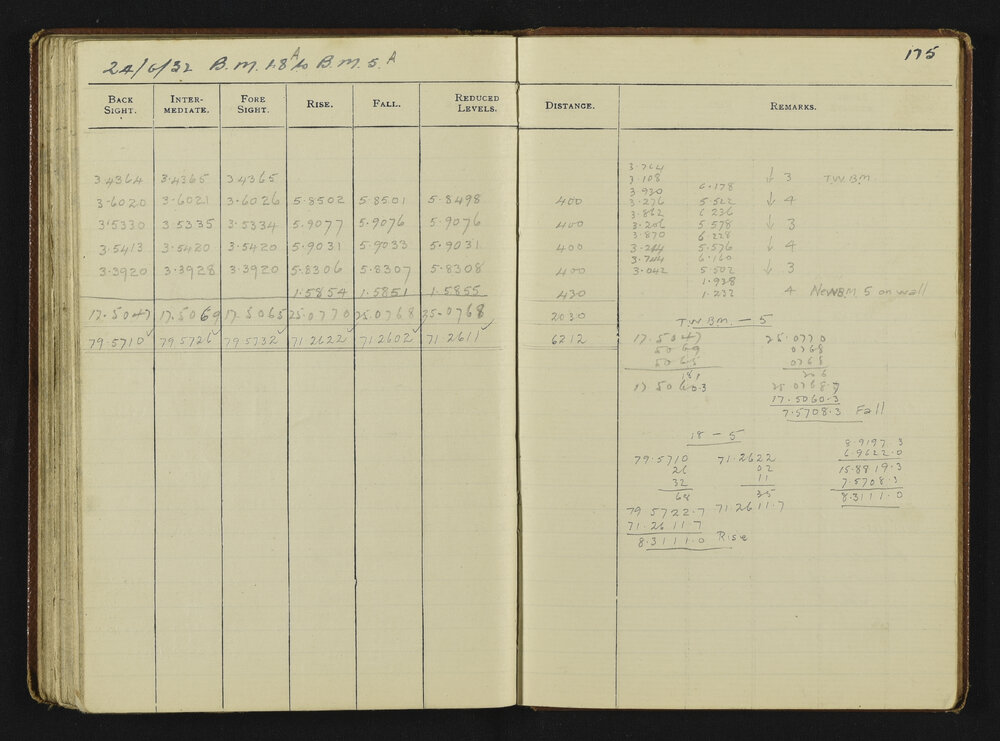 24/6/32 B.M. 18A to B.M. 5A
175
BACK SIGHT. INTER-MEDIATE. FORE SIGHT. RISE. FALL. REDUCED LEVELS. DISTANCE. REMARKS.
3.764
3.4364 3.4365 3.4365 3.108 ↓ 3 T.W.B.M.
3.920 6.178
3.6020 3.6021 3.6026 5.8502 5.8501 5.8498 400 3.276 5.522 ↓ 4
3.862 6.236
3.5330 3.5335 3.5334 5.9077 5.9076 5.9076 400 3.206 5.578 ↓ 3
3.870 6.228
3.5413 3.5420 3.5420 5.9031 5.9033 5.9031 400 3.214 5.576 ↓ 4
3.714 6.160
3.3920 3.3928 3.3920 5.8306 5.8307 5.8308 400 3.042 5.502 ↓ 3
1.928
1.5854 1.5851 1.5855 430 1.232 4 New B.M. 5 on wall
17.5047 17.5069 17.5065 25.0770 25.0768 25.0768 2030
T.W.B.M. — 5
79.5710 79.5726 79.5732 71.2622 71.2602 71.2611 6212
17.5047 25.0770
5069 0768
5065 0768
181 206
17.5060.3 25.0768.7
17.5060.3
7.5708.3 Fall
18 — 5
8.9197.3
79.5710 71.2622 6.9622.0
26 02 15.8819.3
32 11 7.5708.3
68 35 8.3111.0
79.5722.7 71.2611.7
71.2611.7
8.3111.0 Rise